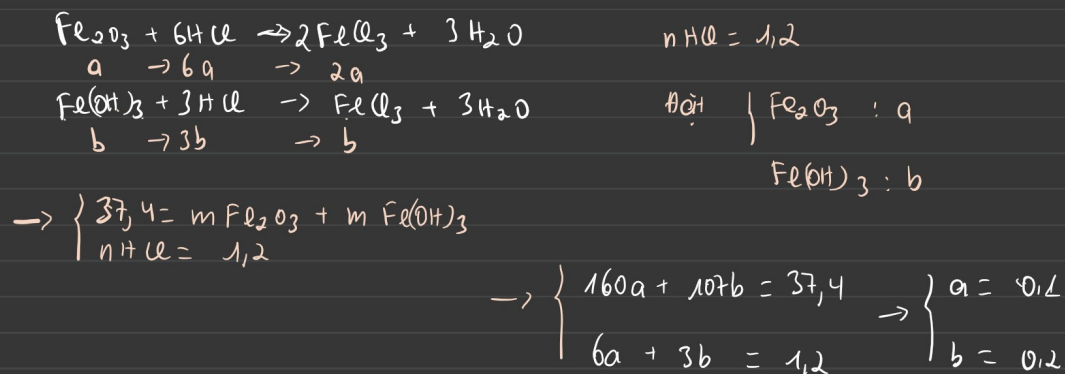 Fe₂O₃ + 6HCl → 2FeCl₃ + 3H₂O
a → 6a → 2a
Fe(OH)₃ + 3HCl → FeCl₃ + 3H₂O
b → 3b → b
nHCl = 1,2
Đặt { Fe₂O₃ : a
Fe(OH)₃ : b
→ { 37,4 = mFe₂O₃ + mFe(OH)₃
nHCl = 1,2
→ { 160a + 107b = 37,4 → { a = 0,1
6a + 3b = 1,2 b = 0,2